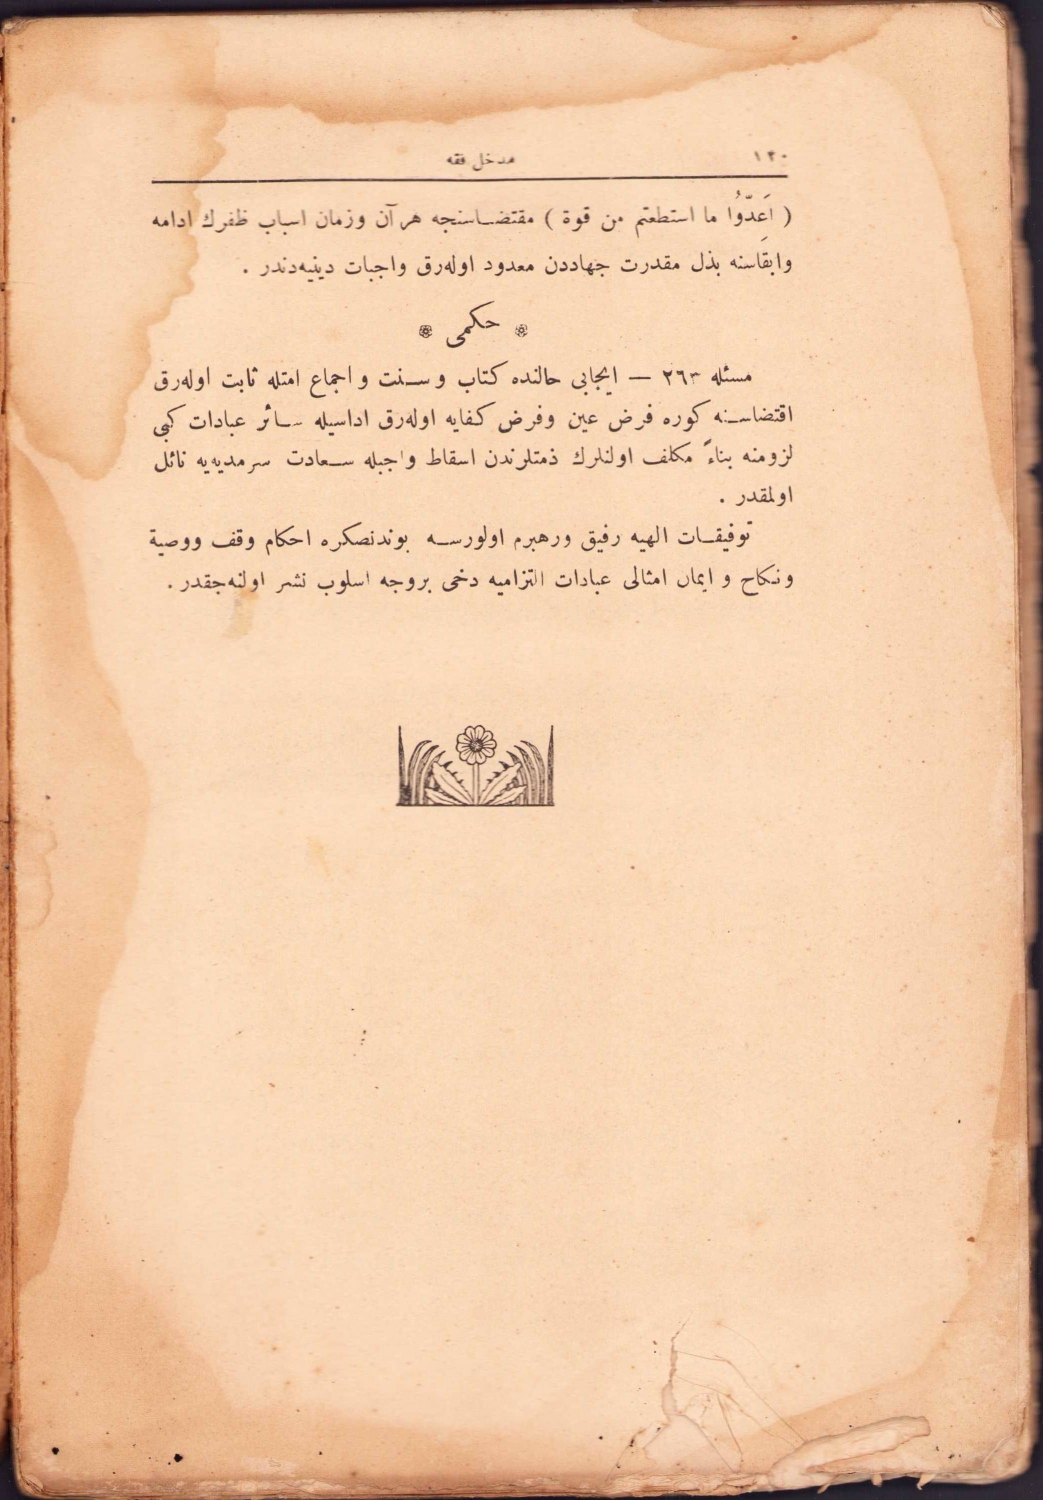 ١٢٠
مدخل فقه
( اَعِدّوُا ما استطعتم من قوة ) مقتضاسنجه هرآن وزمان اسباب ظفرك ادامه
وابقاسنه بذل مقدرت جهاددن معدود اوله‌رق واجبات دينيه‌دندر .
حكمى
مسئله ٢٦٣ — ايجابى حالنده كتاب وسنت و اجماع امتله ثابت اوله‌رق
اقتضاسنه كوره فرض عين وفرض كفايه اوله‌رق اداسيله سائر عبادات كبى
لزومنه بناءً مكلف اولنلرك ذمتلرندن اسقاط واجبله سعادت سرمديه‌يه نائل
اولمقدر .
توفيقات الهيه رفيق ورهبرم اولورسه بوندنصكره احكام وقف ووصية
ونكاح و ايمان امثالى عبادات التزاميه دخى بروجه اسلوب نشر اولنه‌جقدر .